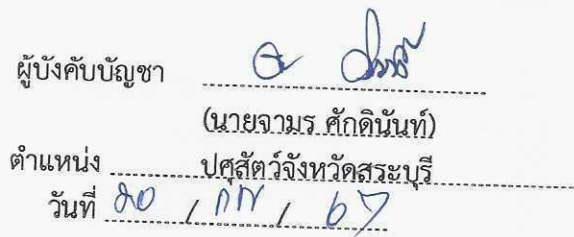 ผู้บังคับบัญชา
(นายจามร ศักดินันท์)
ตำแหน่ง ปศุสัตว์จังหวัดสระบุรี
วันที่ 20 / กพ / 67